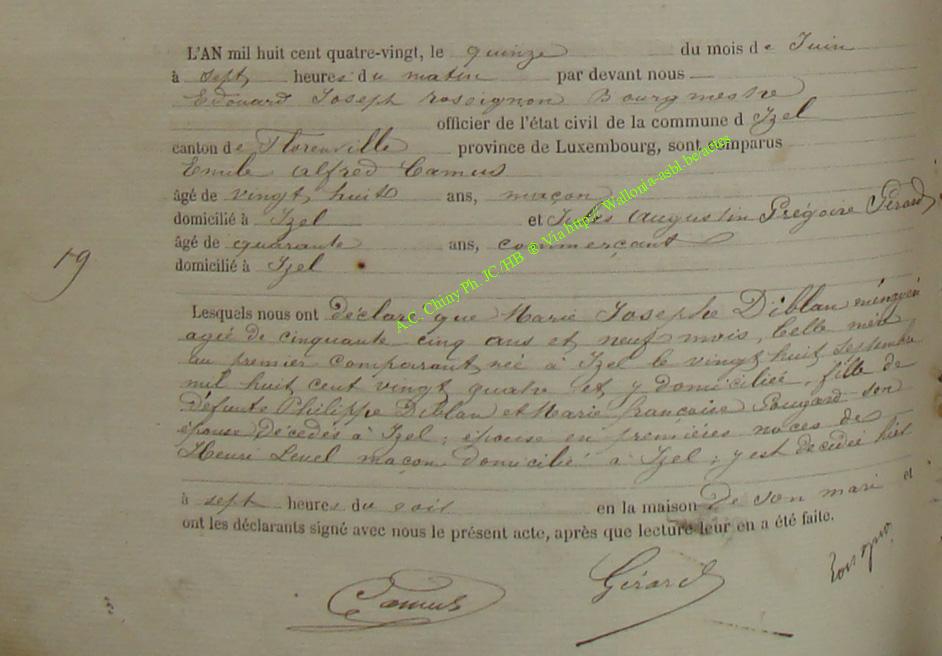 L'AN mil huit cent quatre-vingt, le quinze du mois de Juin
à sept heures du matin par devant nous
Edouard Joseph Rossignon Bourgmestre
officier de l'état civil de la commune d Izel
canton de Florenville province de Luxembourg, sont comparus
Emile Alfred Camus
âgé de vingt huit ans, maçon
domicilié à Izel et Jules Augustin Grégoire Gérard
âgé de quarante ans, commerçant
domicilié à Izel
19
Lesquels nous ont déclaré que Marie Josephe Diblan ménagère
agée de cinquante cinq ans et neuf mois, belle mère
au premier comparant née à Izel le vingt huit septembre
mil huit cent vingt quatre et y domiciliée, fille de
défunts Philippe Diblan et Marie françoise son
épouse décédés à Izel ; épouse en premières noces de
Henri Level maçon domicilié à Izel ; y est décédée hier
à sept heures du soir en la maison de son mari et
ont les déclarants signé avec nous le présent acte, après que lecture leur en a été faite.
Camus Gérard Rossignon
A.C. Chiny Ph. JC/HB @ Via https/ Wallonia-asbl.be/actes